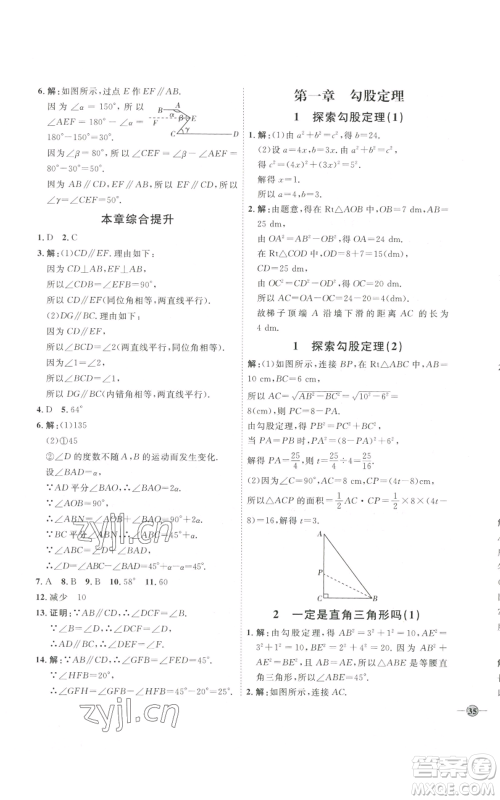 6. 解:如图所示,过点 E 作 EF∥AB.
因为 ∠α=150°,所以
∠AEF=180°-∠α=
180°-150°=30°.
因为 ∠β=80°,所以
∠FEC=∠β-∠AEF=
80°-30°=50°.
因为 AB∥CD,所以 EF∥CD,所以
∠γ=∠CEF=50°.
本章综合提升
1. D 2. C
3. 解:(1)CD∥EF. 理由如下:
因为 CD⊥AB,EF⊥AB,
所以 ∠CDB=∠EFB=90°,
所以 CD∥EF(同位角相等,两直线平行).
(2)DG∥BC. 理由如下:
因为 CD∥EF,
所以 ∠BCD=∠2(两直线平行,同位角相等).
因为 ∠1=∠2,
所以 ∠1=∠BCD,
所以 DG∥BC(内错角相等,两直线平行).
4. D 5. 64°
6. 解:(1)135
(2)①45
②∠D 的度数不随 A,B 的运动而发生变化.
∵AD 平分∠BAO,∴∠DAB=
∵∠AOB=90°,
∴∠ABN=∠AOB+∠BAO=
∵BC 平分∠ABN,∴∠ABC=
∵∠ABC=∠D+∠DAB,
∴∠D=45°.
7. A 8. B 9. B 10. 58° 11. 60
12. 减少 10
13. 证明:∵AB∥CD,∴∠DCF=∠B=
∵∠D=45°,∴∠DCF=∠D,
14. 解:∵AB∥CD,∴∠GFB=∠FED=45°.
∵∠HFB=20°,
∴∠GFH=∠GFB-∠HFB=45°-20°=25°.
第一章 勾股定理
1 探索勾股定理(1)
1. 解:(1)由 a²+b²=c²,得 b=24.
(2)设 a=4x,b=3x,由 a²+b²=c²,得
c²=(4x)²+(3x)²,
解得 x=1.
所以 a=4,b=3.
2. 解:由题意,得在 Rt△AOB 中,OB=7 dm,由
OA²+OB²=AB²,得 OA=24 dm.
在 Rt△COD 中,OD=8+7=15(dm),
由 OC²+OD²=CD²,得 OC=20 dm.
所以 AC=OA-OC=24-20=4(dm).
故梯子顶端 A 沿墙下滑的距离 AC 长为
4 dm.
1 探索勾股定理(2)
解:(1)如图所示,连接 BP,在 Rt△ABC 中,AB=
10 cm,BC=6 cm,
所以 AC=√(AB²-BC²)=√(10²-6²)=
8(cm),所以 PC=8-PA.
当 PA=PB 时,PA²=PC²+BC²=(8-PA)²+6²,
解得 PA=25/4,所以 t=25/4÷4=25/16.
(2)因为 ∠C=90°,PC=(4t-8)cm,
所以 △ACP 的面积=1/2AC×CP=1/2×8×(4t-
8)=16,解得 t=3.
A
P
C
B
2 一定是直角三角形吗(1)
1. 解:由勾股定理,得 AB²=3²+1²=10,AE²=
2²+1²=5,BE²=2²+1²=5,所以 AE²+
BE²=AB²,AE=BE,所以△ABE 是等腰直
角三角形,所以∠ABE=45°.
2. 解:如图所示,连接 AC.
35
zyjl.cn
zyjl.cn